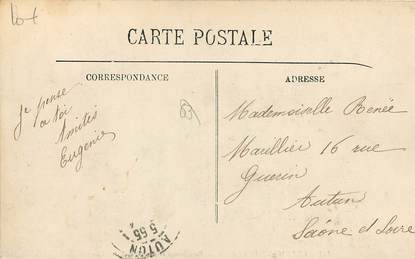 Lot
CARTE POSTALE
CORRESPONDANCE
ADRESSE
Je pense
a toi
Amitiés
Eugenie
Mademoiselle Renée
Maullier 16 rue
Guerin
Autun
Saône et Loire
AUTUN